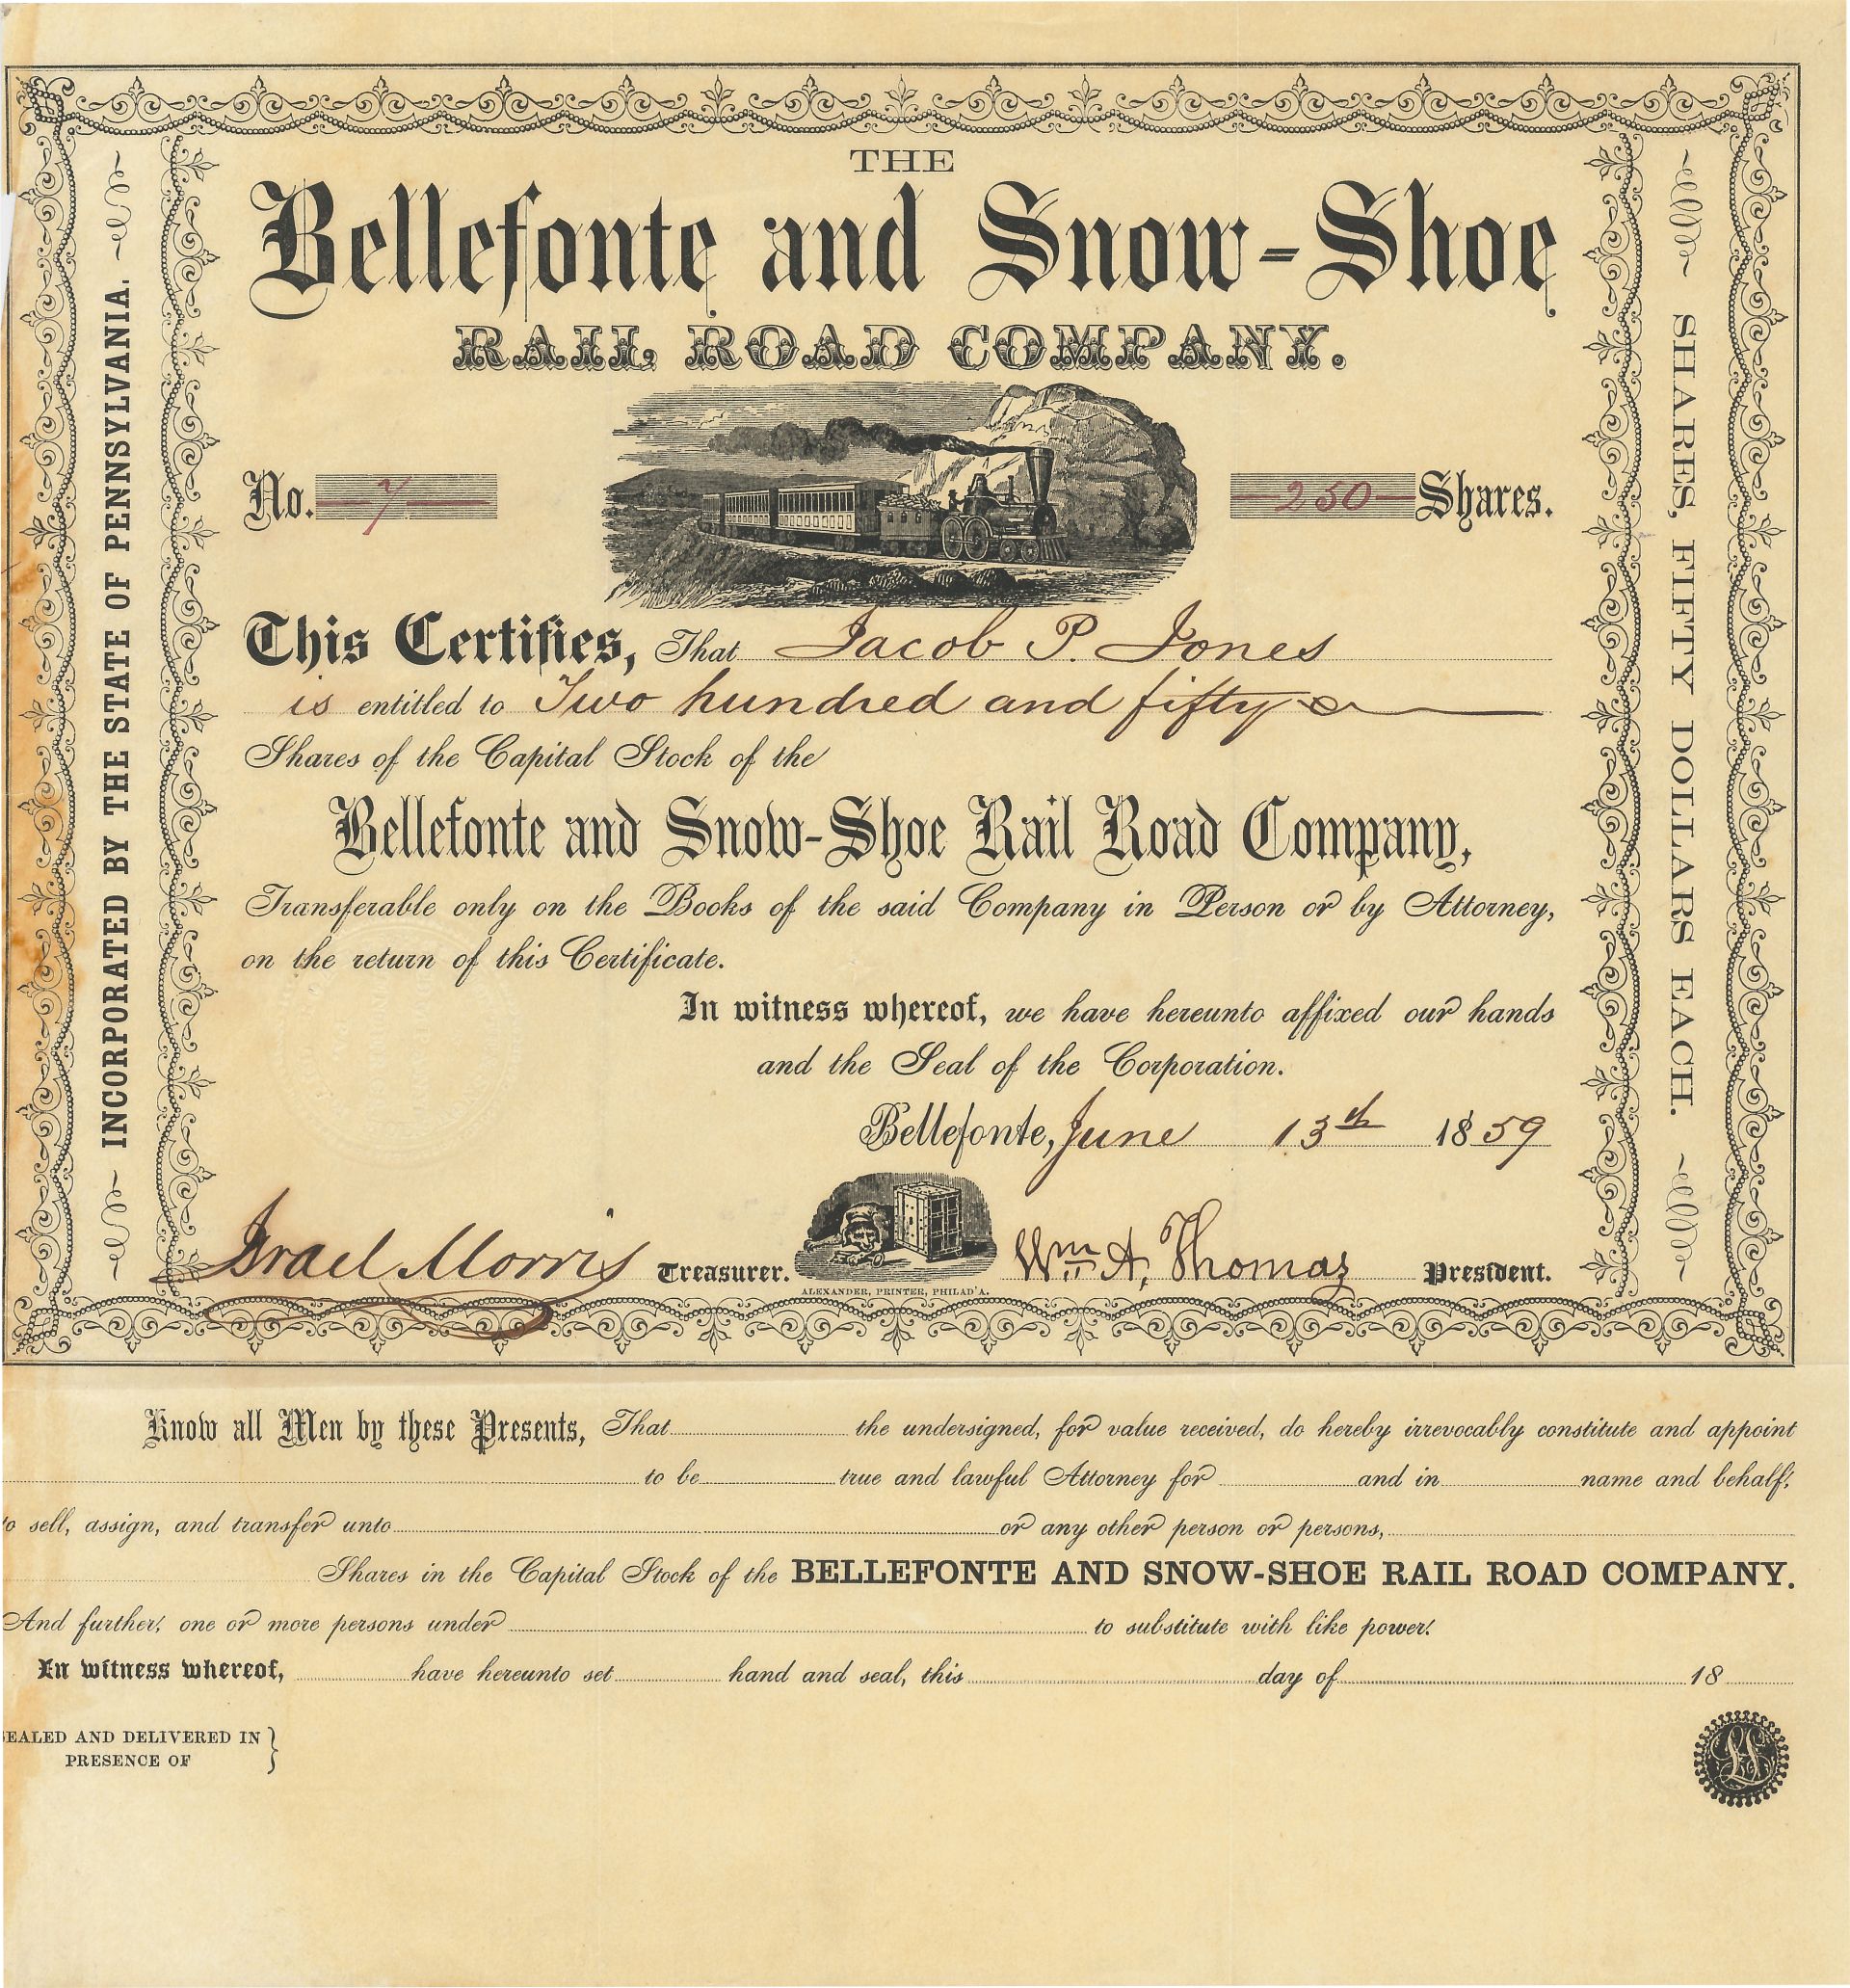 THE
Bellefonte and Snow-Shoe
RAIL ROAD COMPANY.
No. 7
250 Shares.
INCORPORATED BY THE STATE OF PENNSYLVANIA.
SHARES, FIFTY DOLLARS EACH.
This Certifies, That Jacob P. Jones
is entitled to Two hundred and fifty
Shares of the Capital Stock of the
Bellefonte and Snow-Shoe Rail Road Company,
Transferable only on the Books of the said Company in Person or by Attorney,
on the return of this Certificate.
In witness whereof, we have hereunto affixed our hands
and the Seal of the Corporation.
Bellefonte, June 13th 1859
Israel Morris Treasurer. Wm A. Thomas President.
ALEXANDER, PRINTER, PHILAD'A.
Know all Men by these Presents, That the undersigned, for value received, do hereby irrevocably constitute and appoint
to be true and lawful Attorney for and in name and behalf,
to sell, assign, and transfer unto or any other person or persons,
Shares in the Capital Stock of the BELLEFONTE AND SNOW-SHOE RAIL ROAD COMPANY.
And further, one or more persons under to substitute with like power.
In witness whereof, have hereunto set hand and seal, this day of 18
SEALED AND DELIVERED IN }
PRESENCE OF
LS